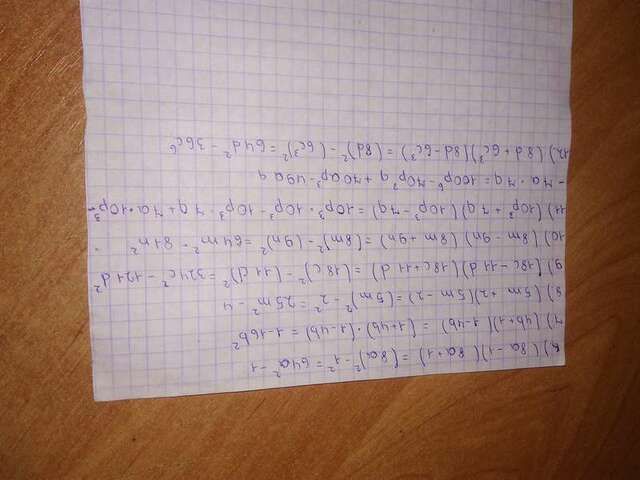 6)(8a-1)(8a+1)=(8a)²-1²=64a²-1
7)(4b+1)(1-4b)=(1+4b)·(1-4b)=1-16b²
8)(5m+2)(5m-2)=(5m)²-2²=25m²-4
9)(18c-11d)(18c+11d)=(18c)²-(11d)²=324c²-121d²
10)(8m-9n)(8m+9n)=(8m)²-(9n)²=64m²-81n²
11)(10p³+7q)(10p³-7q)=10p³·10p³-10p³·7q+7a·10p³-
-7a·7q=100p⁶-70p³q+70ap³-49aq
12)(8d+6c³)(8d-6c³)=(8d)²-(6c³)²=64d²-36c⁶